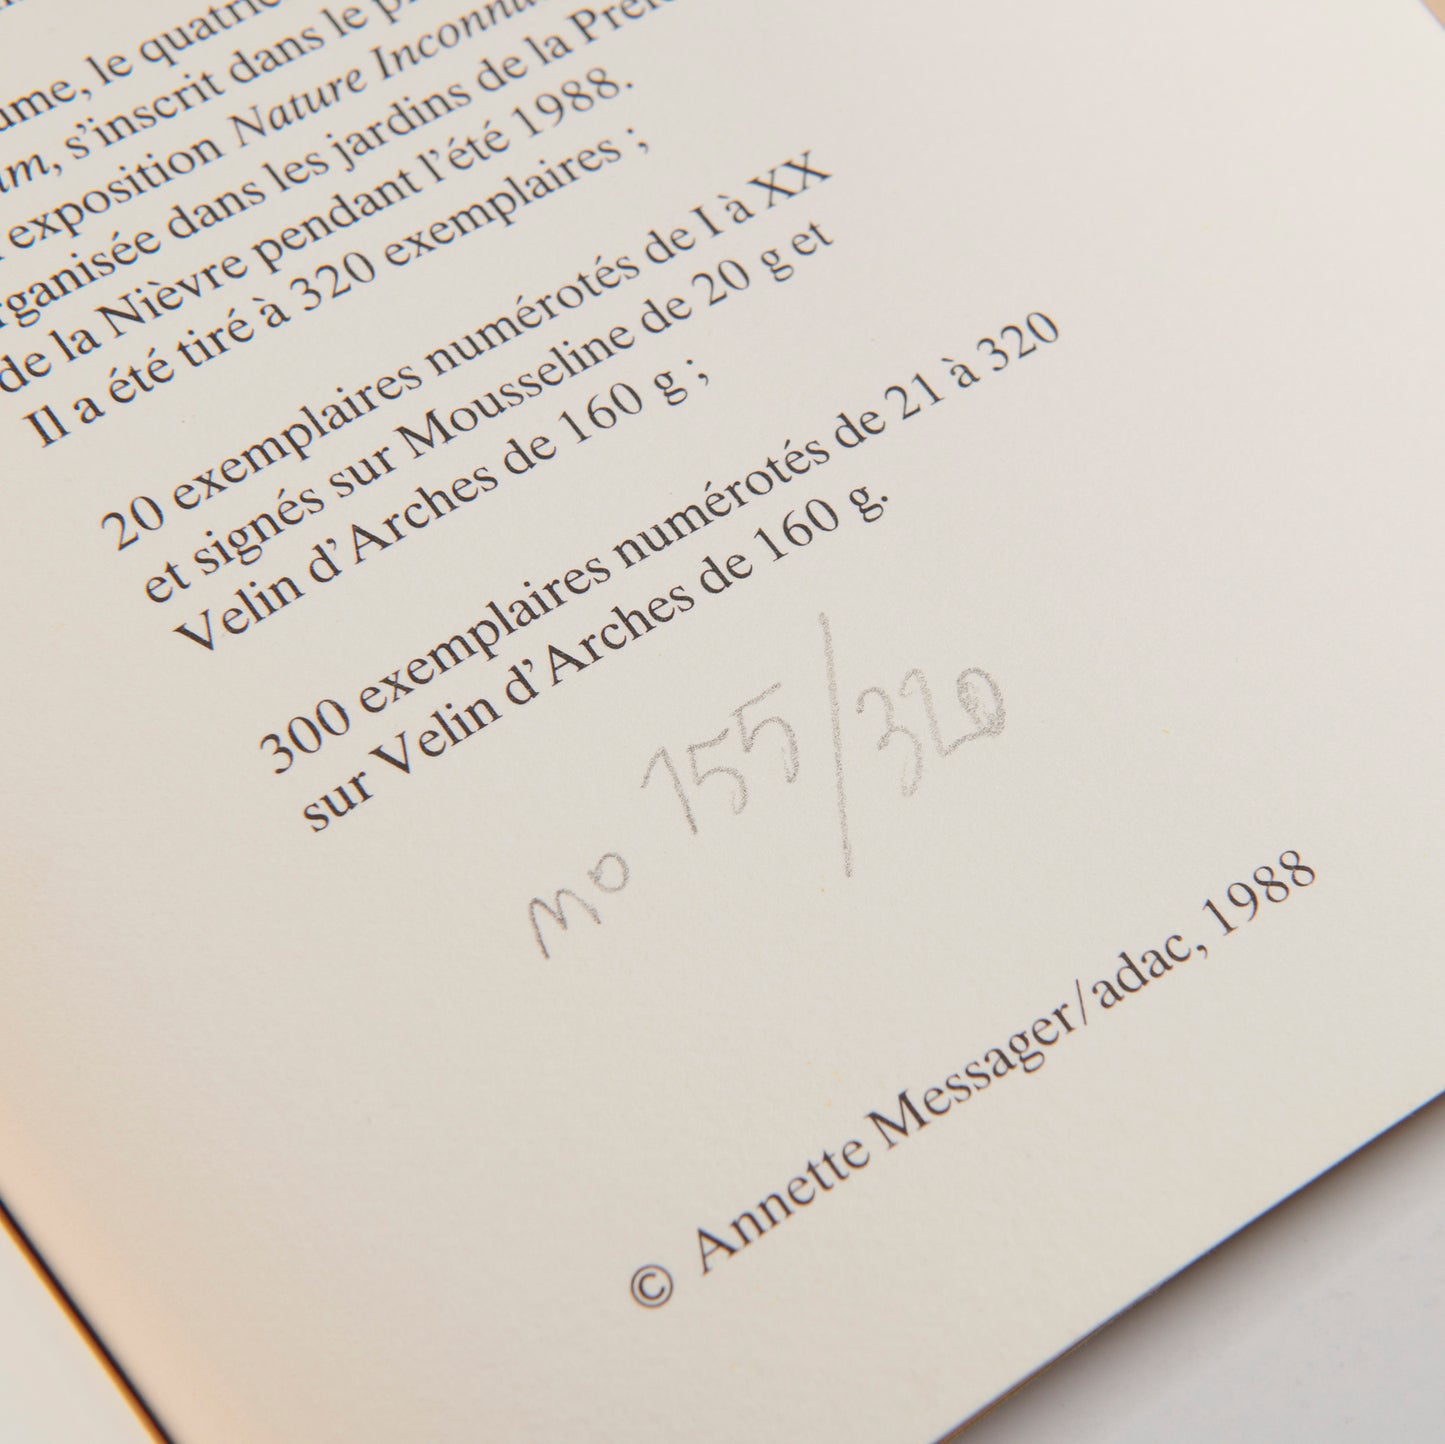 le quatriè
s'inscrit dans le
exposition Nature Inconnu
dans les jardins de la Préfe
de la Nièvre pendant l'été 1988.
Il a été tiré à 320 exemplaires ;
20 exemplaires numérotés de I à XX
et signés sur Mousseline de 20 g et
Velin d'Arches de 160 g ;
300 exemplaires numérotés de 21 à 320
sur Velin d'Arches de 160 g.
no 155/320
© Annette Messager/adac, 1988